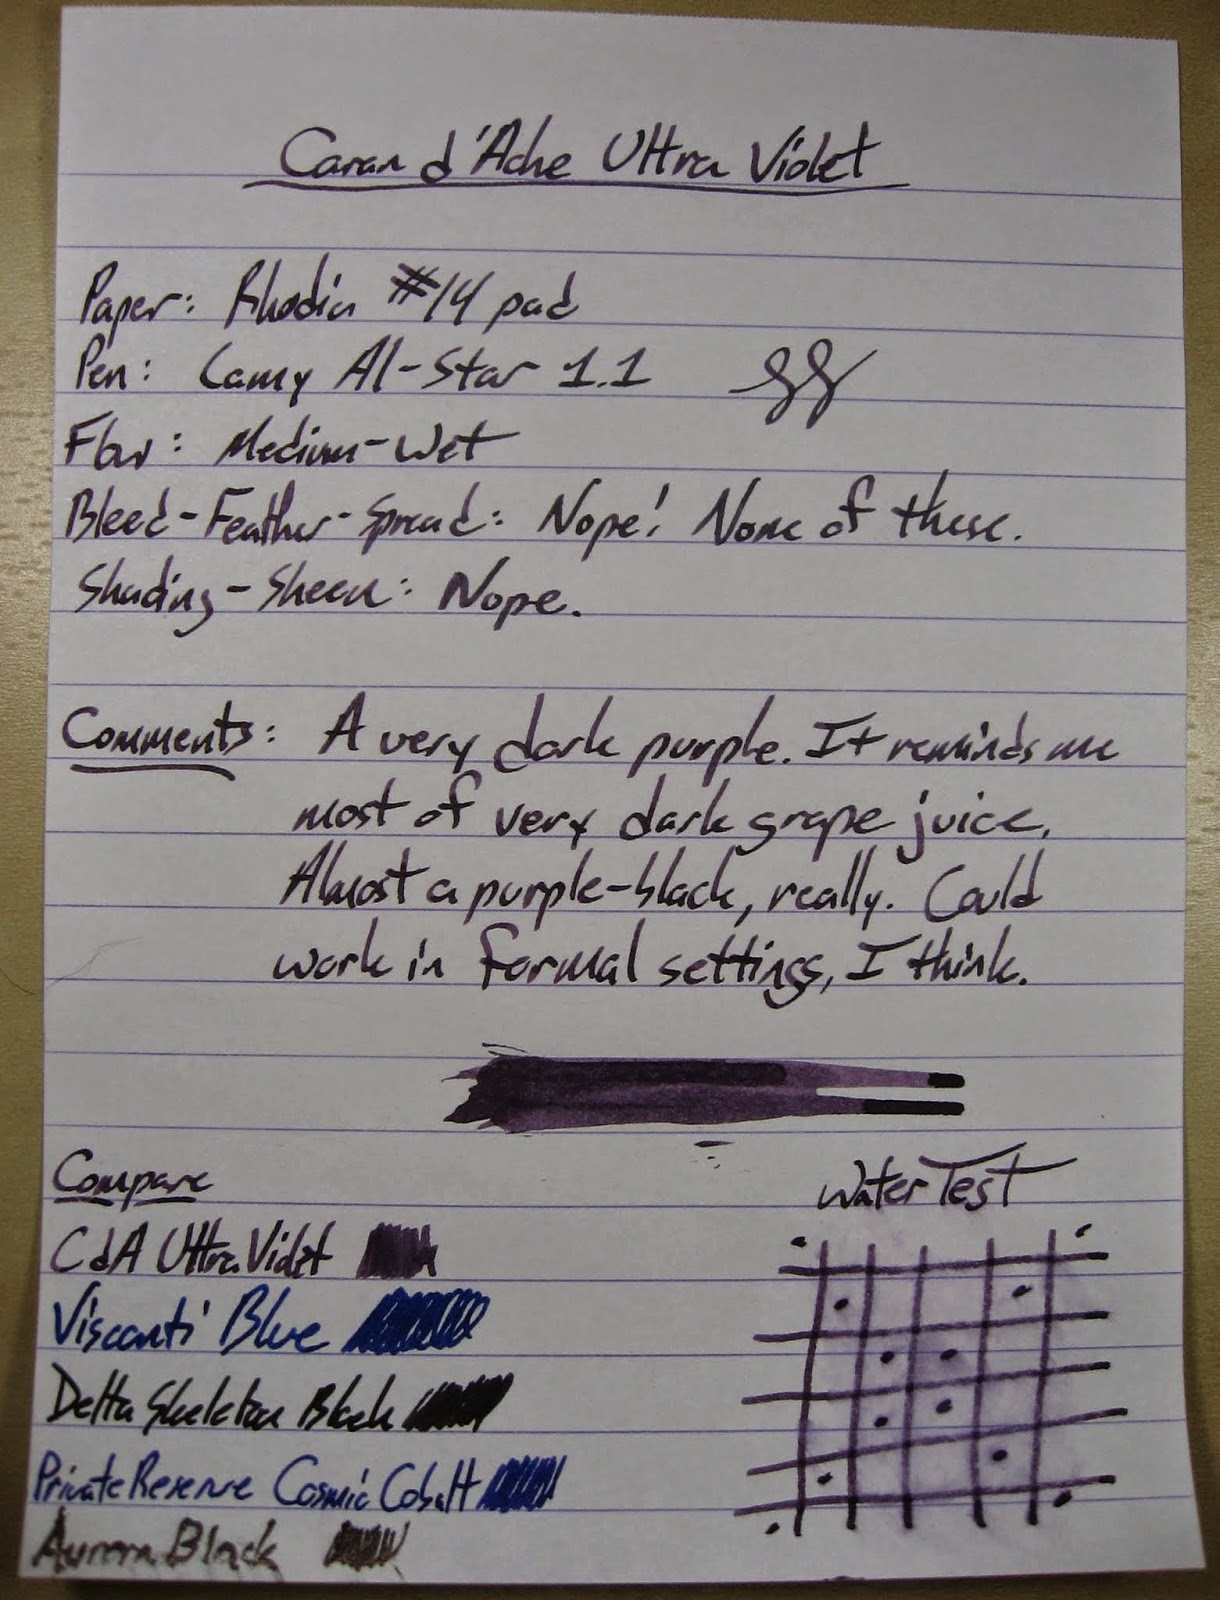 Caran d'Ache Ultra Violet
Paper: Rhodia #14 pad
Pen: Lamy Al-Star 1.1
Flow: Medium-Wet
Bleed-Feather-Spread: Nope! None of these.
Shading-Sheen: Nope.
Comments: A very dark purple. It reminds me
most of very dark grape juice.
Almost a purple-black, really. Could
work in formal settings, I think.
Compare
Water Test
CdA Ultra Violet
Visconti Blue
Delta Skeleton Black
Private Reserve Cosmic Cobalt
Aurora Black